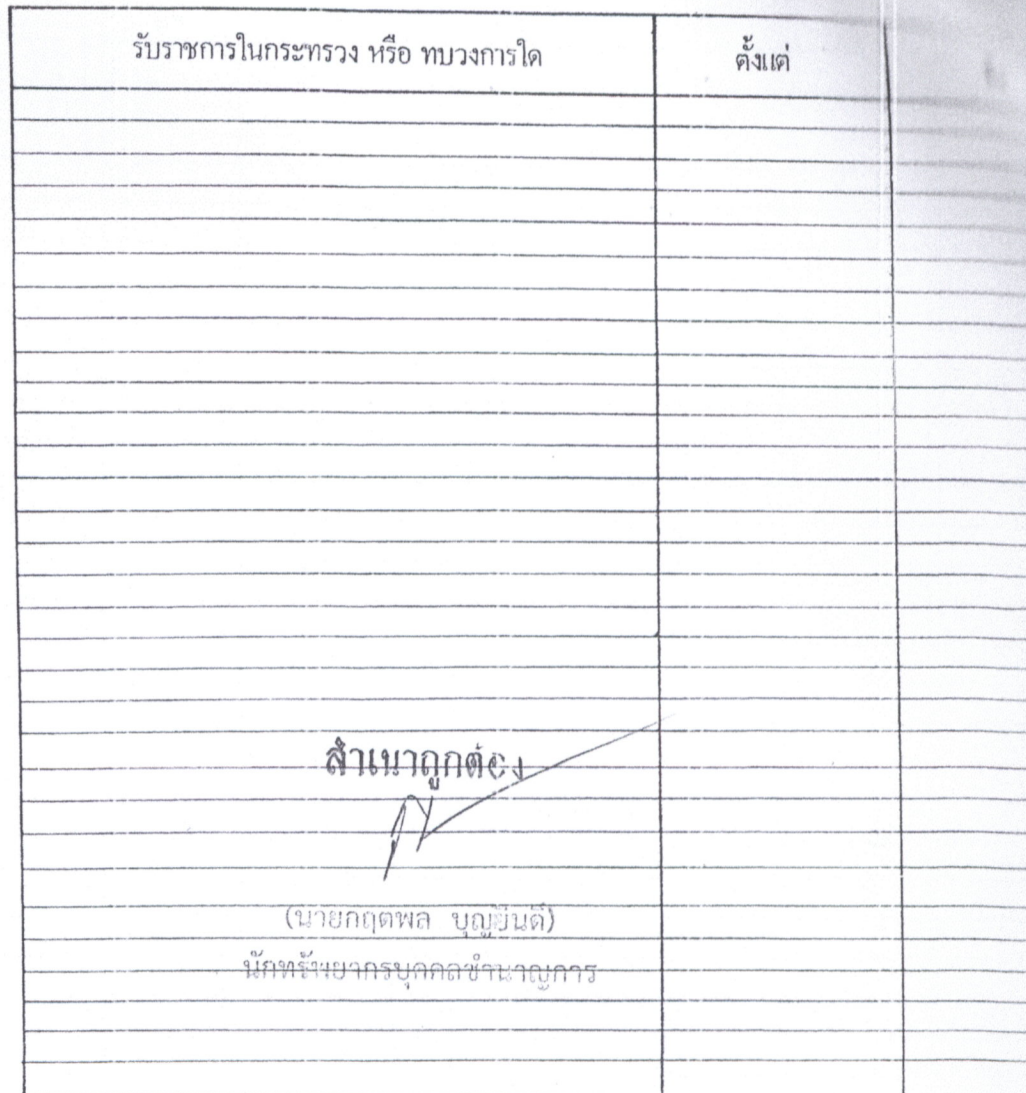 รับราชการในกระทรวง หรือ ทบวงการใด
ตั้งแต่
สำเนาถูกต้อง
(นายกฤตพล บุญยินดี)
นักทรัพยากรบุคคลชำนาญการ